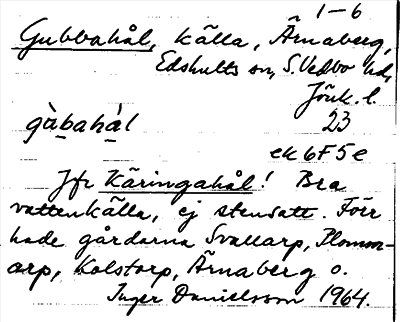 1-6
Gubbahål, källa, Ärnaberg,
Edshults sn, S. Vedbo hd,
Jönk. l.
gàbahál 23
ek 6F5e
Jfr Käringahål! Bra
vattenkälla, ej stensatt. Förr
hade gårdarna Svallarp, Plomm-
arp, Kolstorp, Ärnaberg o.
Inger Danielsson 1964.